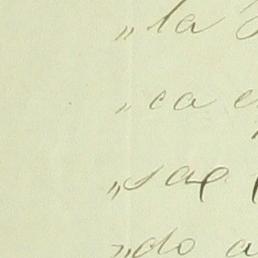 „ la
„ ca
„ sap
„ do a